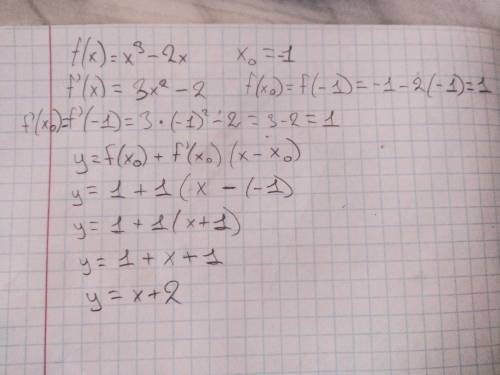 f(x) = x³ - 2x    x₀ = -1
f'(x) = 3x² - 2    f(x₀) = f(-1) = -1 - 2(-1) = 1
f'(x₀) = f'(-1) = 3 · (-1)² - 2 = 3 - 2 = 1
y = f(x₀) + f'(x₀) (x - x₀)
y = 1 + 1 (x - (-1)
y = 1 + 1 (x + 1)
y = 1 + x + 1
y = x + 2